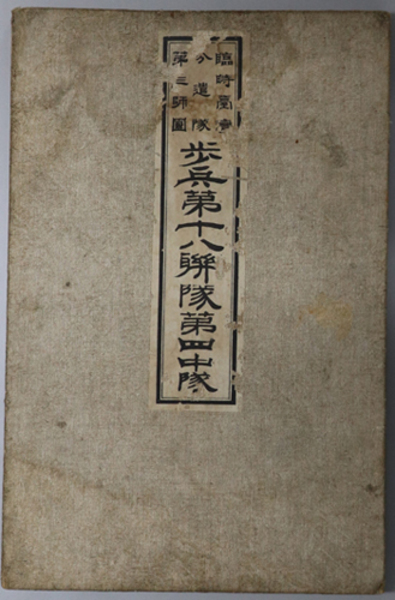 臨時臺湾
分遣隊
第三師團
歩兵第十八聯隊第四中隊